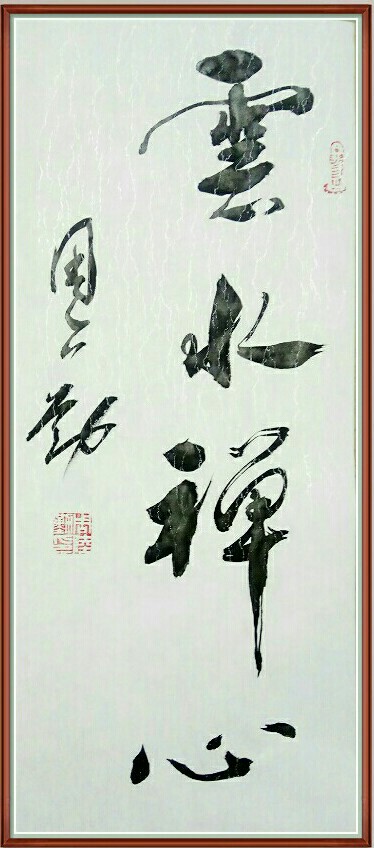 雲水禪心
周勤